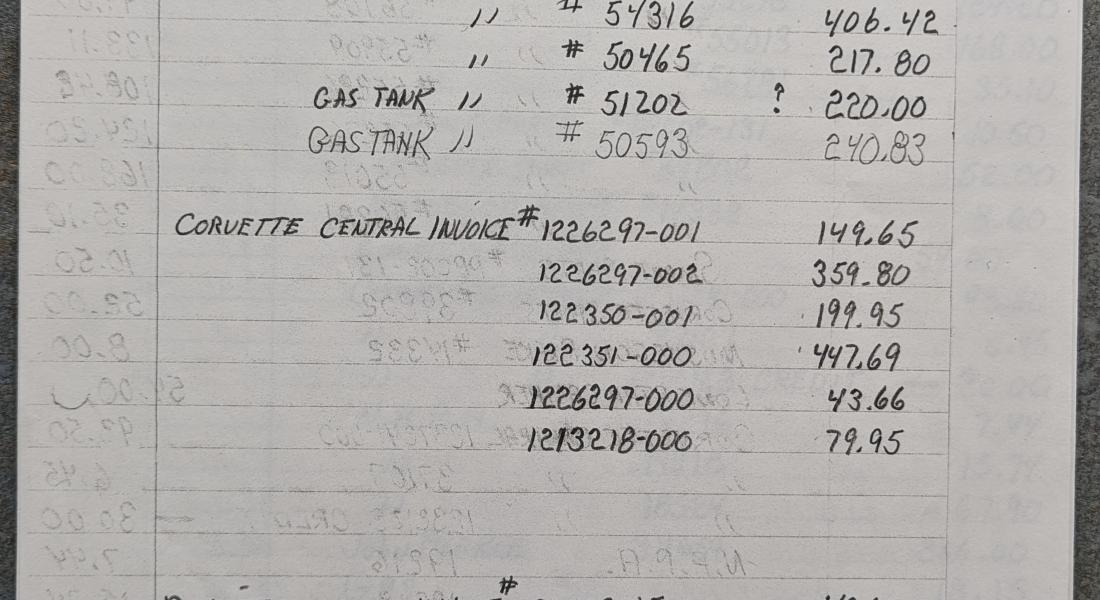 " # 54316 406.42
" # 50465 217.80
GAS TANK " # 51202 ? 220.00
GAS TANK " # 50593 240.83
CORVETTE CENTRAL INVOICE # 1226297-001 149.65
1226297-002 359.80
122350-001 199.95
122351-000 447.69
1226297-000 43.66
1213218-000 79.95
#